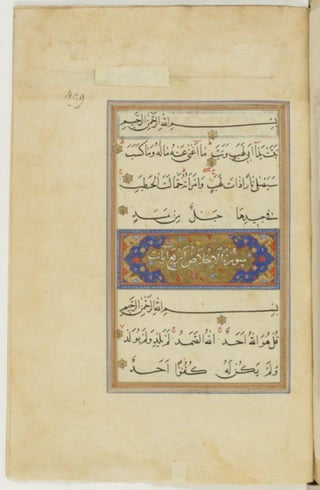 بسم الله الرحمن الرحيم
تبت يدا ابى لهب وتب ما اغنى عنه ماله وما كسب
سيصلى نارا ذات لهب وامراته حمالة الحطب
فى جيدها حبل من مسد
سورة الاخلاص اربع آيات
بسم الله الرحمن الرحيم
قل هو الله احد الله الصمد لم يلد ولم يولد
ولم يكن له كفوا احد